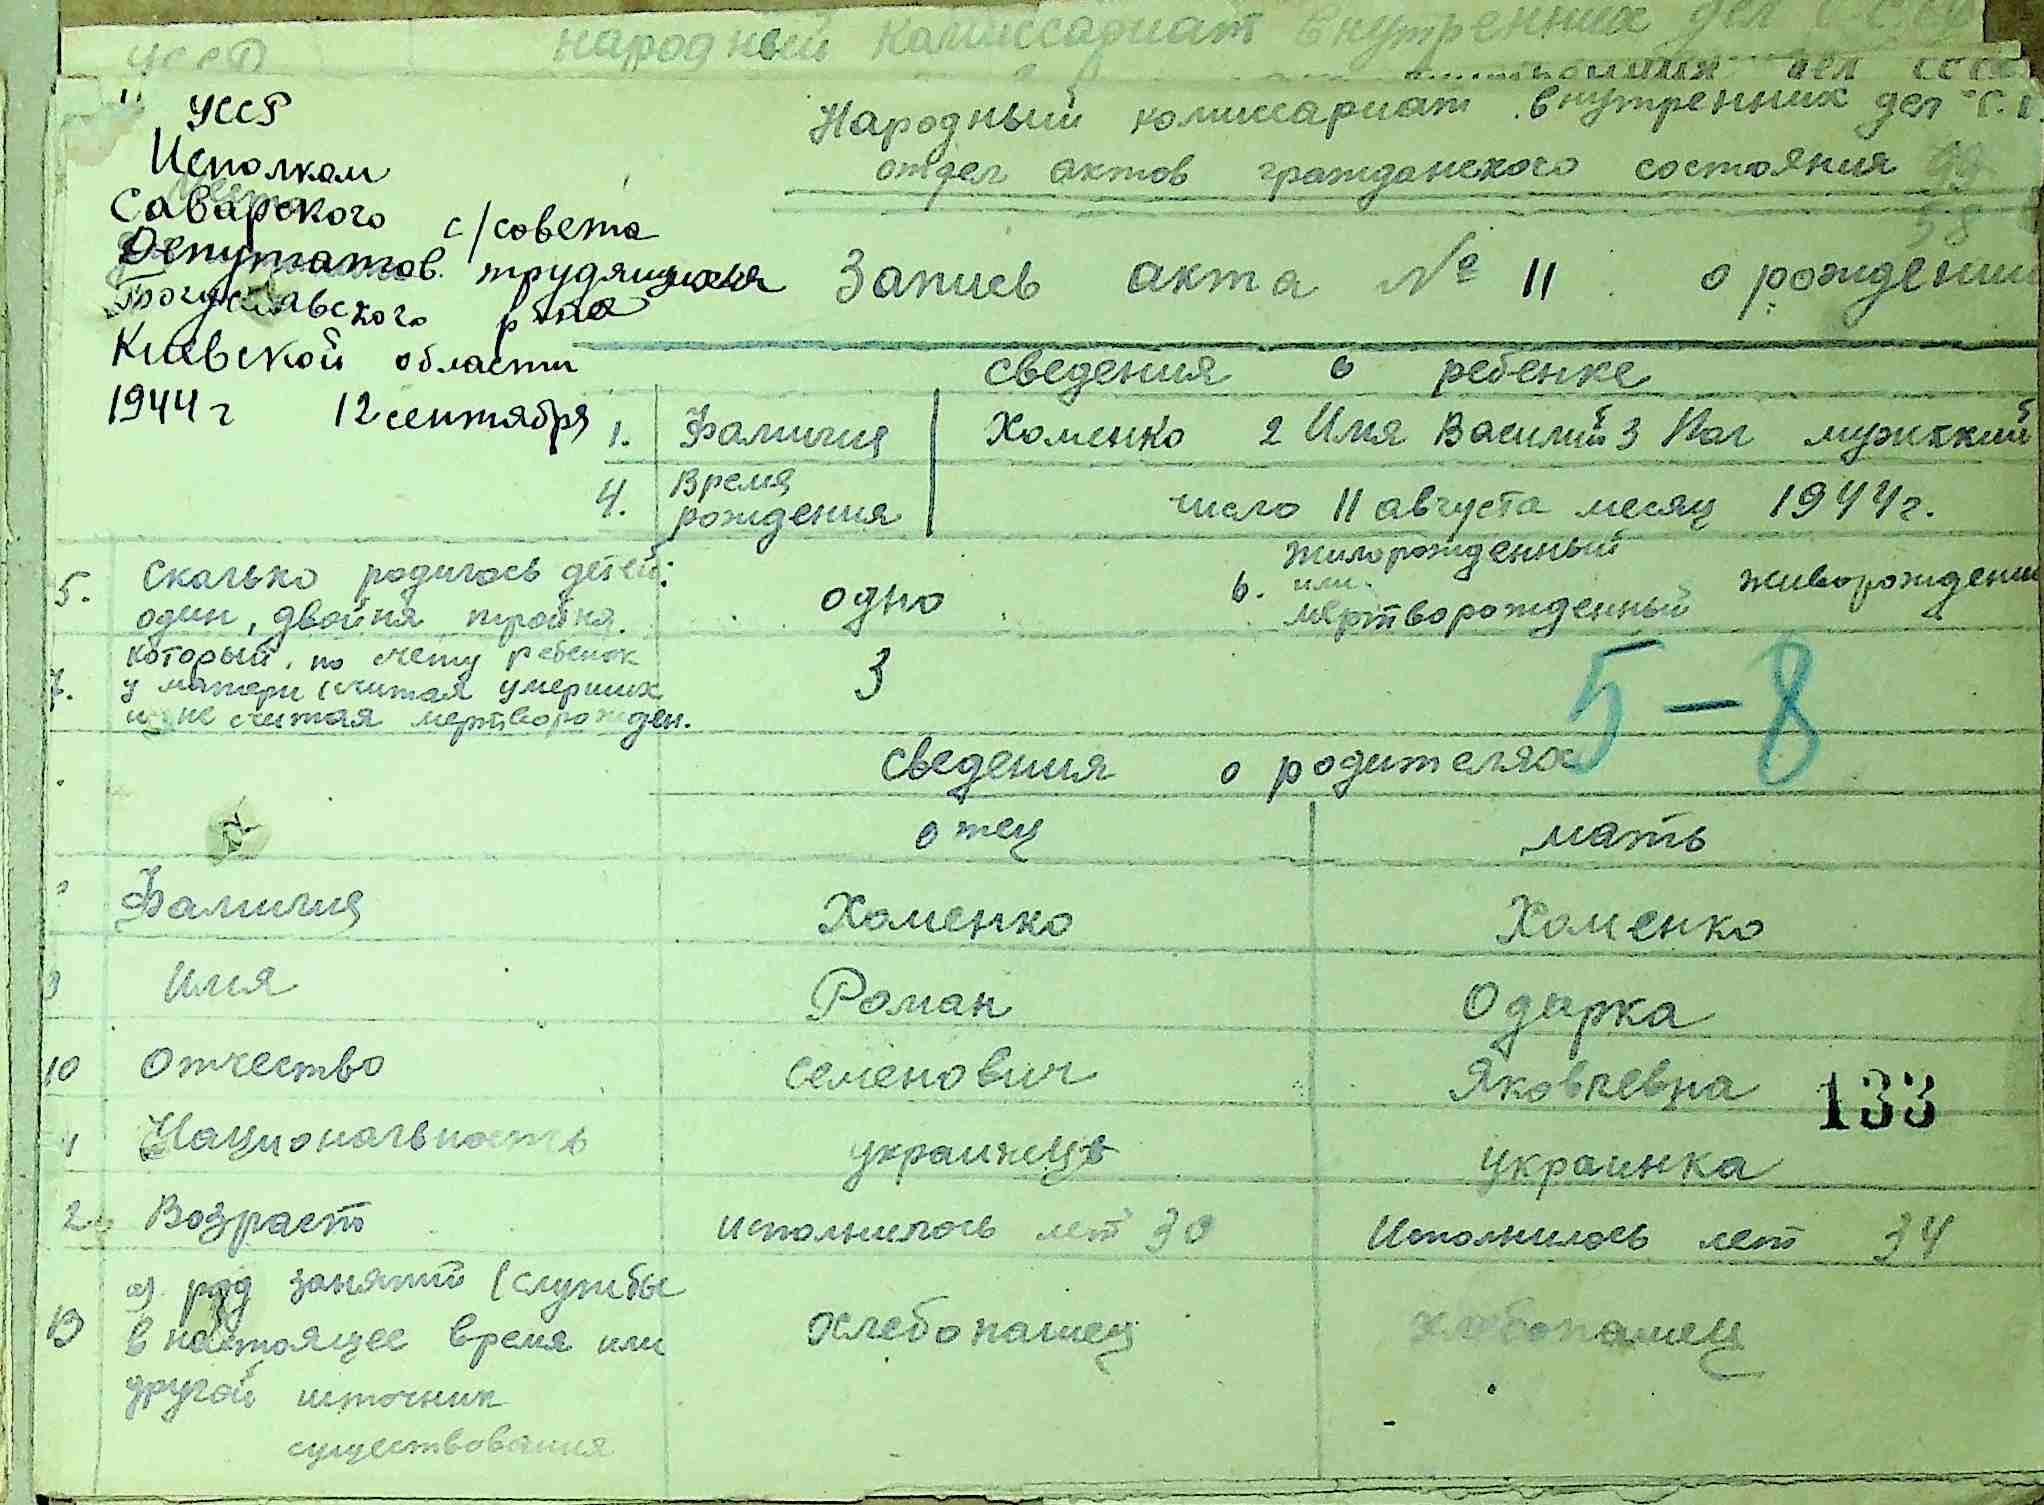 УССР
народный комиссариат внутренних дел СССР
УССР
Исполком
Саварского с/совета
Депутатов трудящихся
Богуславского р-на
Киевской области
1944 г 12 сентября
Народный комиссариат внутренних дел С.С.
отдел актов гражданского состояния
58
Запись акта № 11 о рождении
сведения о ребенке
1. Фамилия Хоменко 2 Имя Василий 3 Пол мужский
4. Время рождения число 11 августа месяц 1944 г.
5. Сколько родилось детей:
один, двойня тройня.
одно
6. Живорожденный
или
мертворожденный
живорожден
7. который по счету ребенок
у матери (считая умерших
и не считая мертворожден.
3
5-8
сведения о родителях
отец мать
Фамилия Хоменко Хоменко
9 Имя Роман Одарка
10 Отчество Семенович Яковлевна
133
Национальность украинец украинка
2. Возраст исполнилось лет 30 Исполнилось лет 34
13 а) род занятий (службы
в настоящее время или
другой источник
существования
хлебопашец хлебопашец